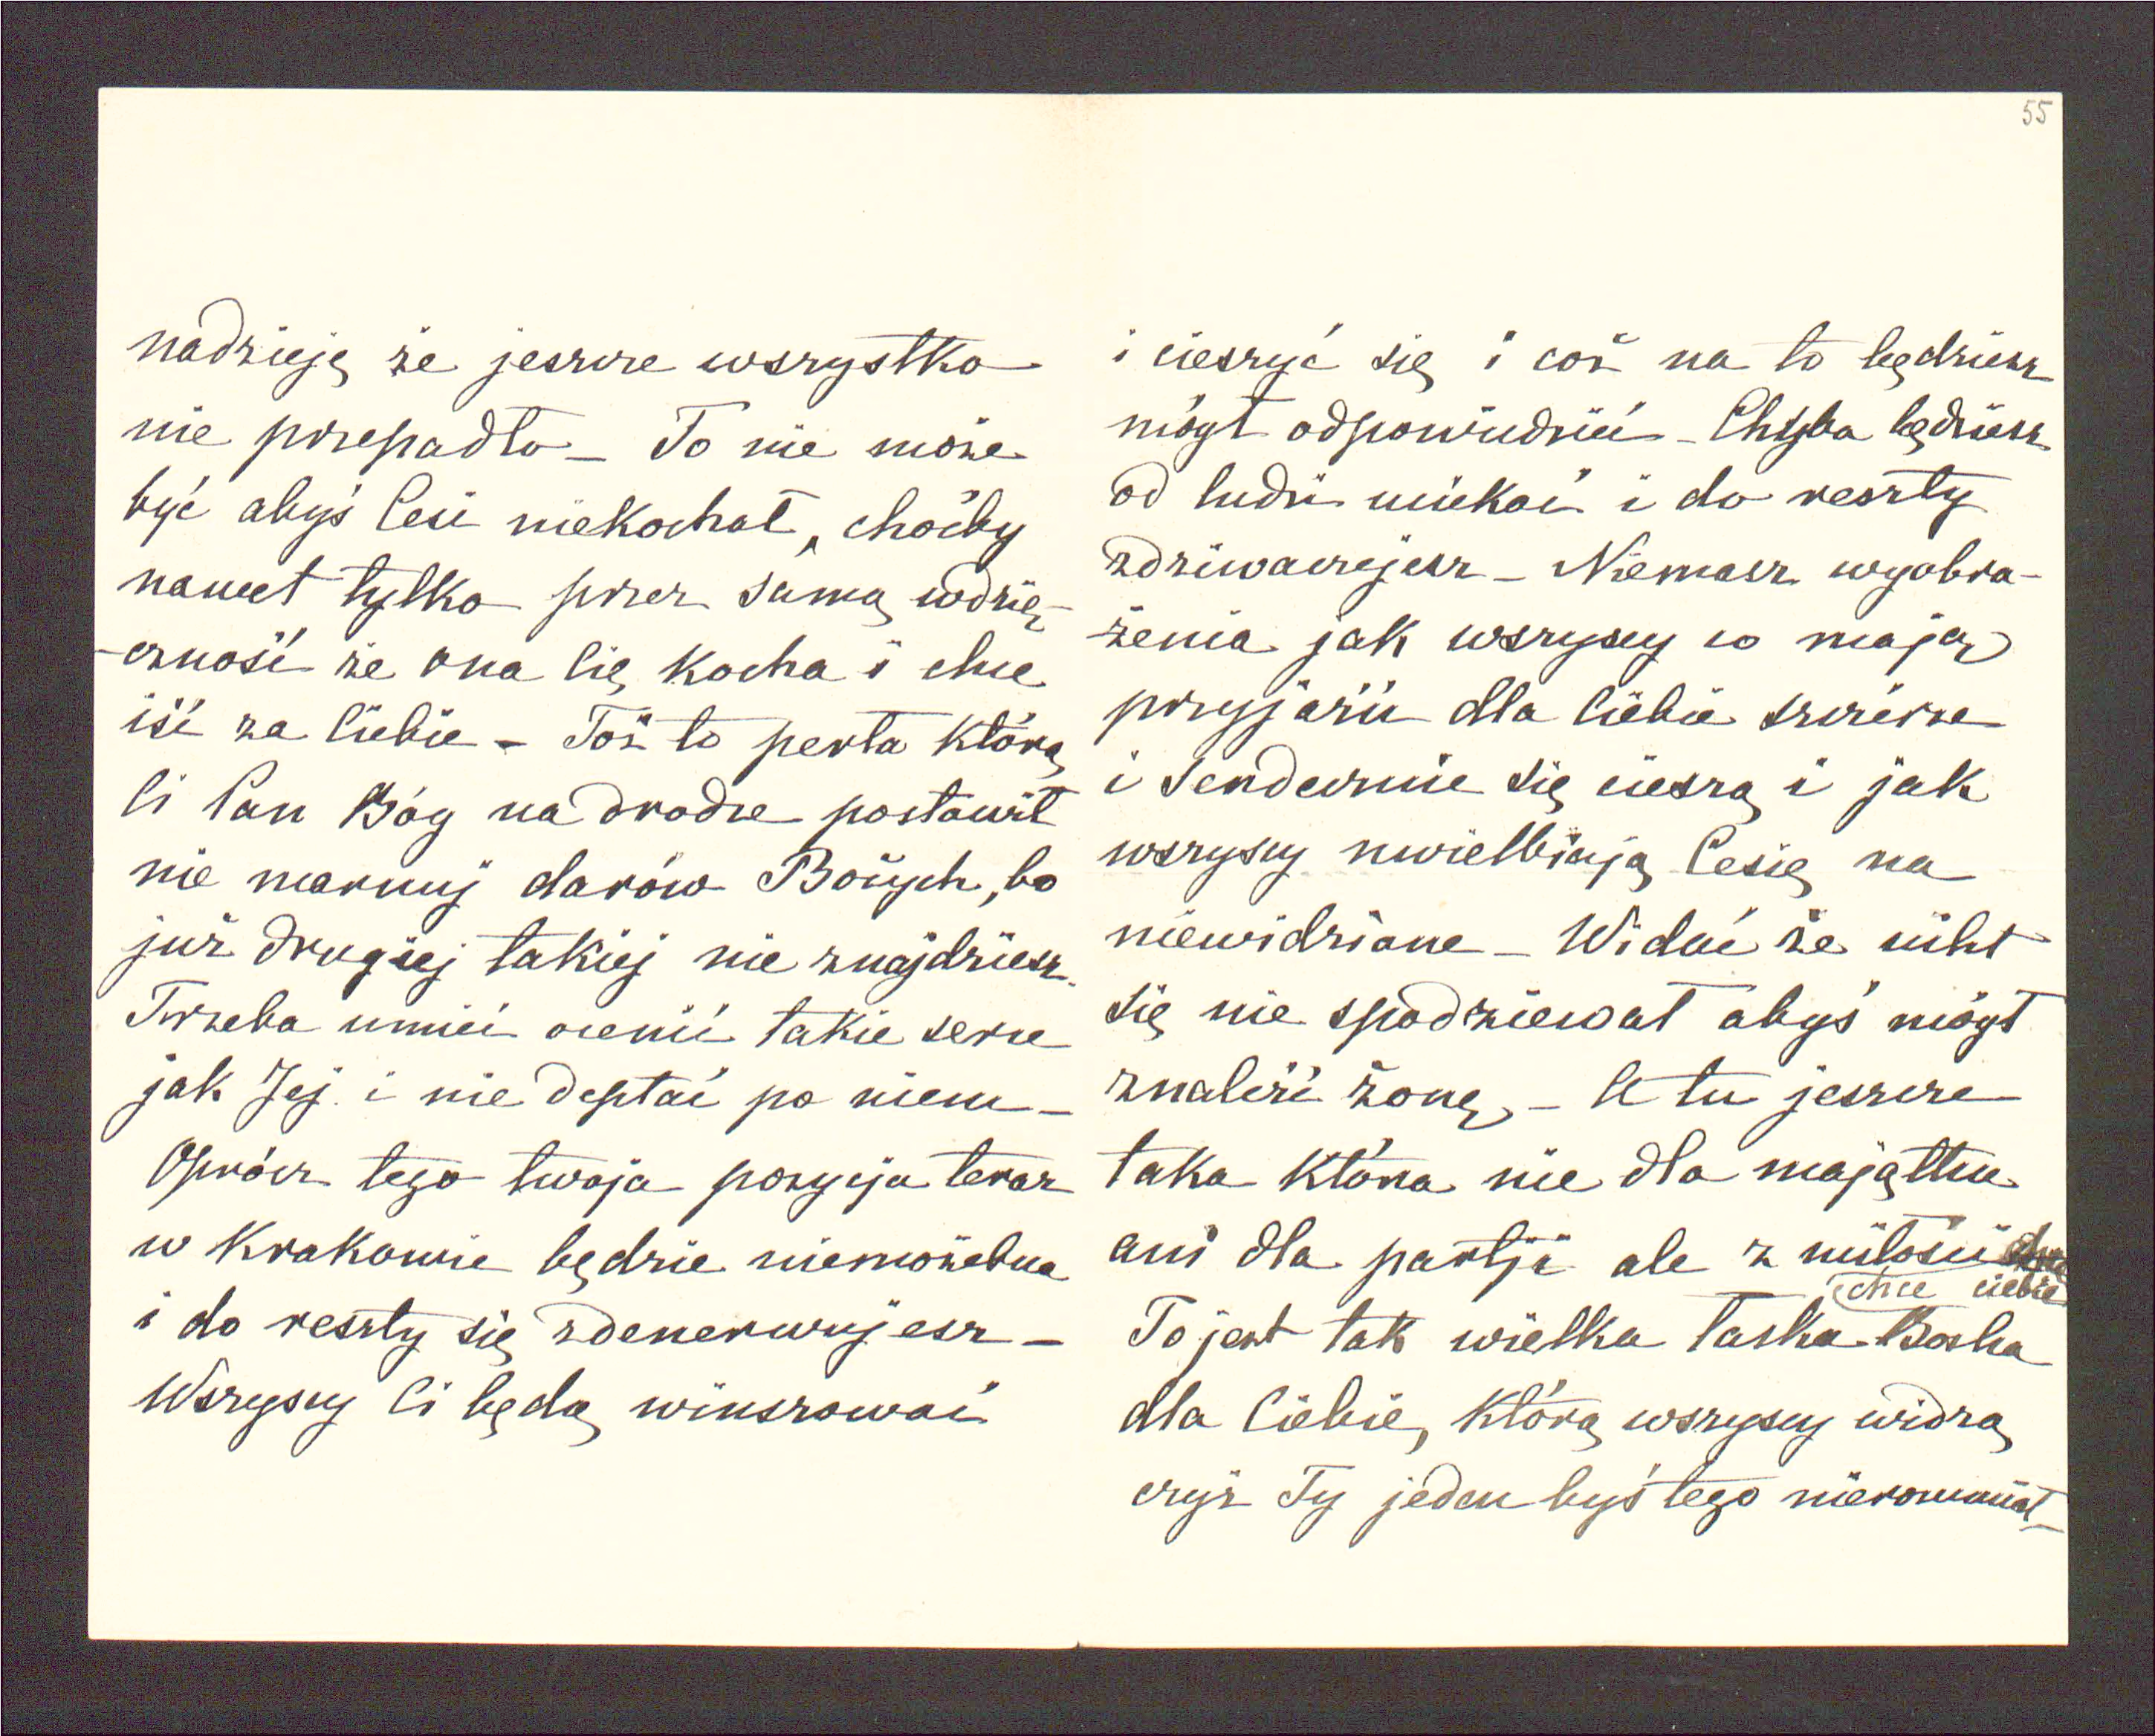 nadzieję że jeszcze wszystko
nie przepadło – To nie może
być abyś Cesi niekochał, choćby
nawet tylko przez samą wdzię-
-czność że ona Cię kocha i chce
iść za Ciebie – Toż to perła którą
Ci Pan Bóg na drodze postawił
nie marnuj darów Bożych, bo
już drugiej takiej nie znajdziesz.
Trzeba umieć ocenić takie serce
jak Jej i nie deptać po niem –
Oprócz tego twoja pozycja teraz
w Krakowie będzie niemożebna
i do reszty się zdenerwujesz –
Wszyscy Ci będą winszować
55
i cieszyć się i coż na to będziesz
mógł odpowiedzieć – Chyba będziesz
od ludzi uciekać i do reszty
zdziwaczejesz – Niemasz wyobra-
-żenia jak wszyscy co mają
przyjaźń dla Ciebie szczerze
i serdecznie się cieszą i jak
wszyscy uwielbiają Cesię na
niewidziane – Widać że nikt
się nie spodziewał abyś mógł
znaleźć żonę, – A tu jeszcze
taka która nie dla majątku
ani dla partji ale z miłości
chce ciebie
To jest tak wielka łaska Boska
dla Ciebie, którą wszyscy widzą
czyż Ty jeden byś tego nierozumiał –